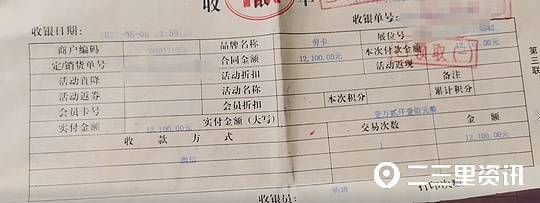 收 银 单
收银日期:
收银单号:
商户编码 品牌名称 劳卡 展位号
定/销货单号 合同金额 12,100.00元 本次付款金额
活动直降 活动折扣 活动返现
活动返券 活动名称 备注
会员卡号 会员折扣 本次积分 累计积分
实付金额 12,100.00元 实付金额(大写) 壹万贰仟壹佰元整
收 款 方 式 交易次数 金 额
微信 1 12,100.00元
收银员:
打印次
第三联
二三里资讯